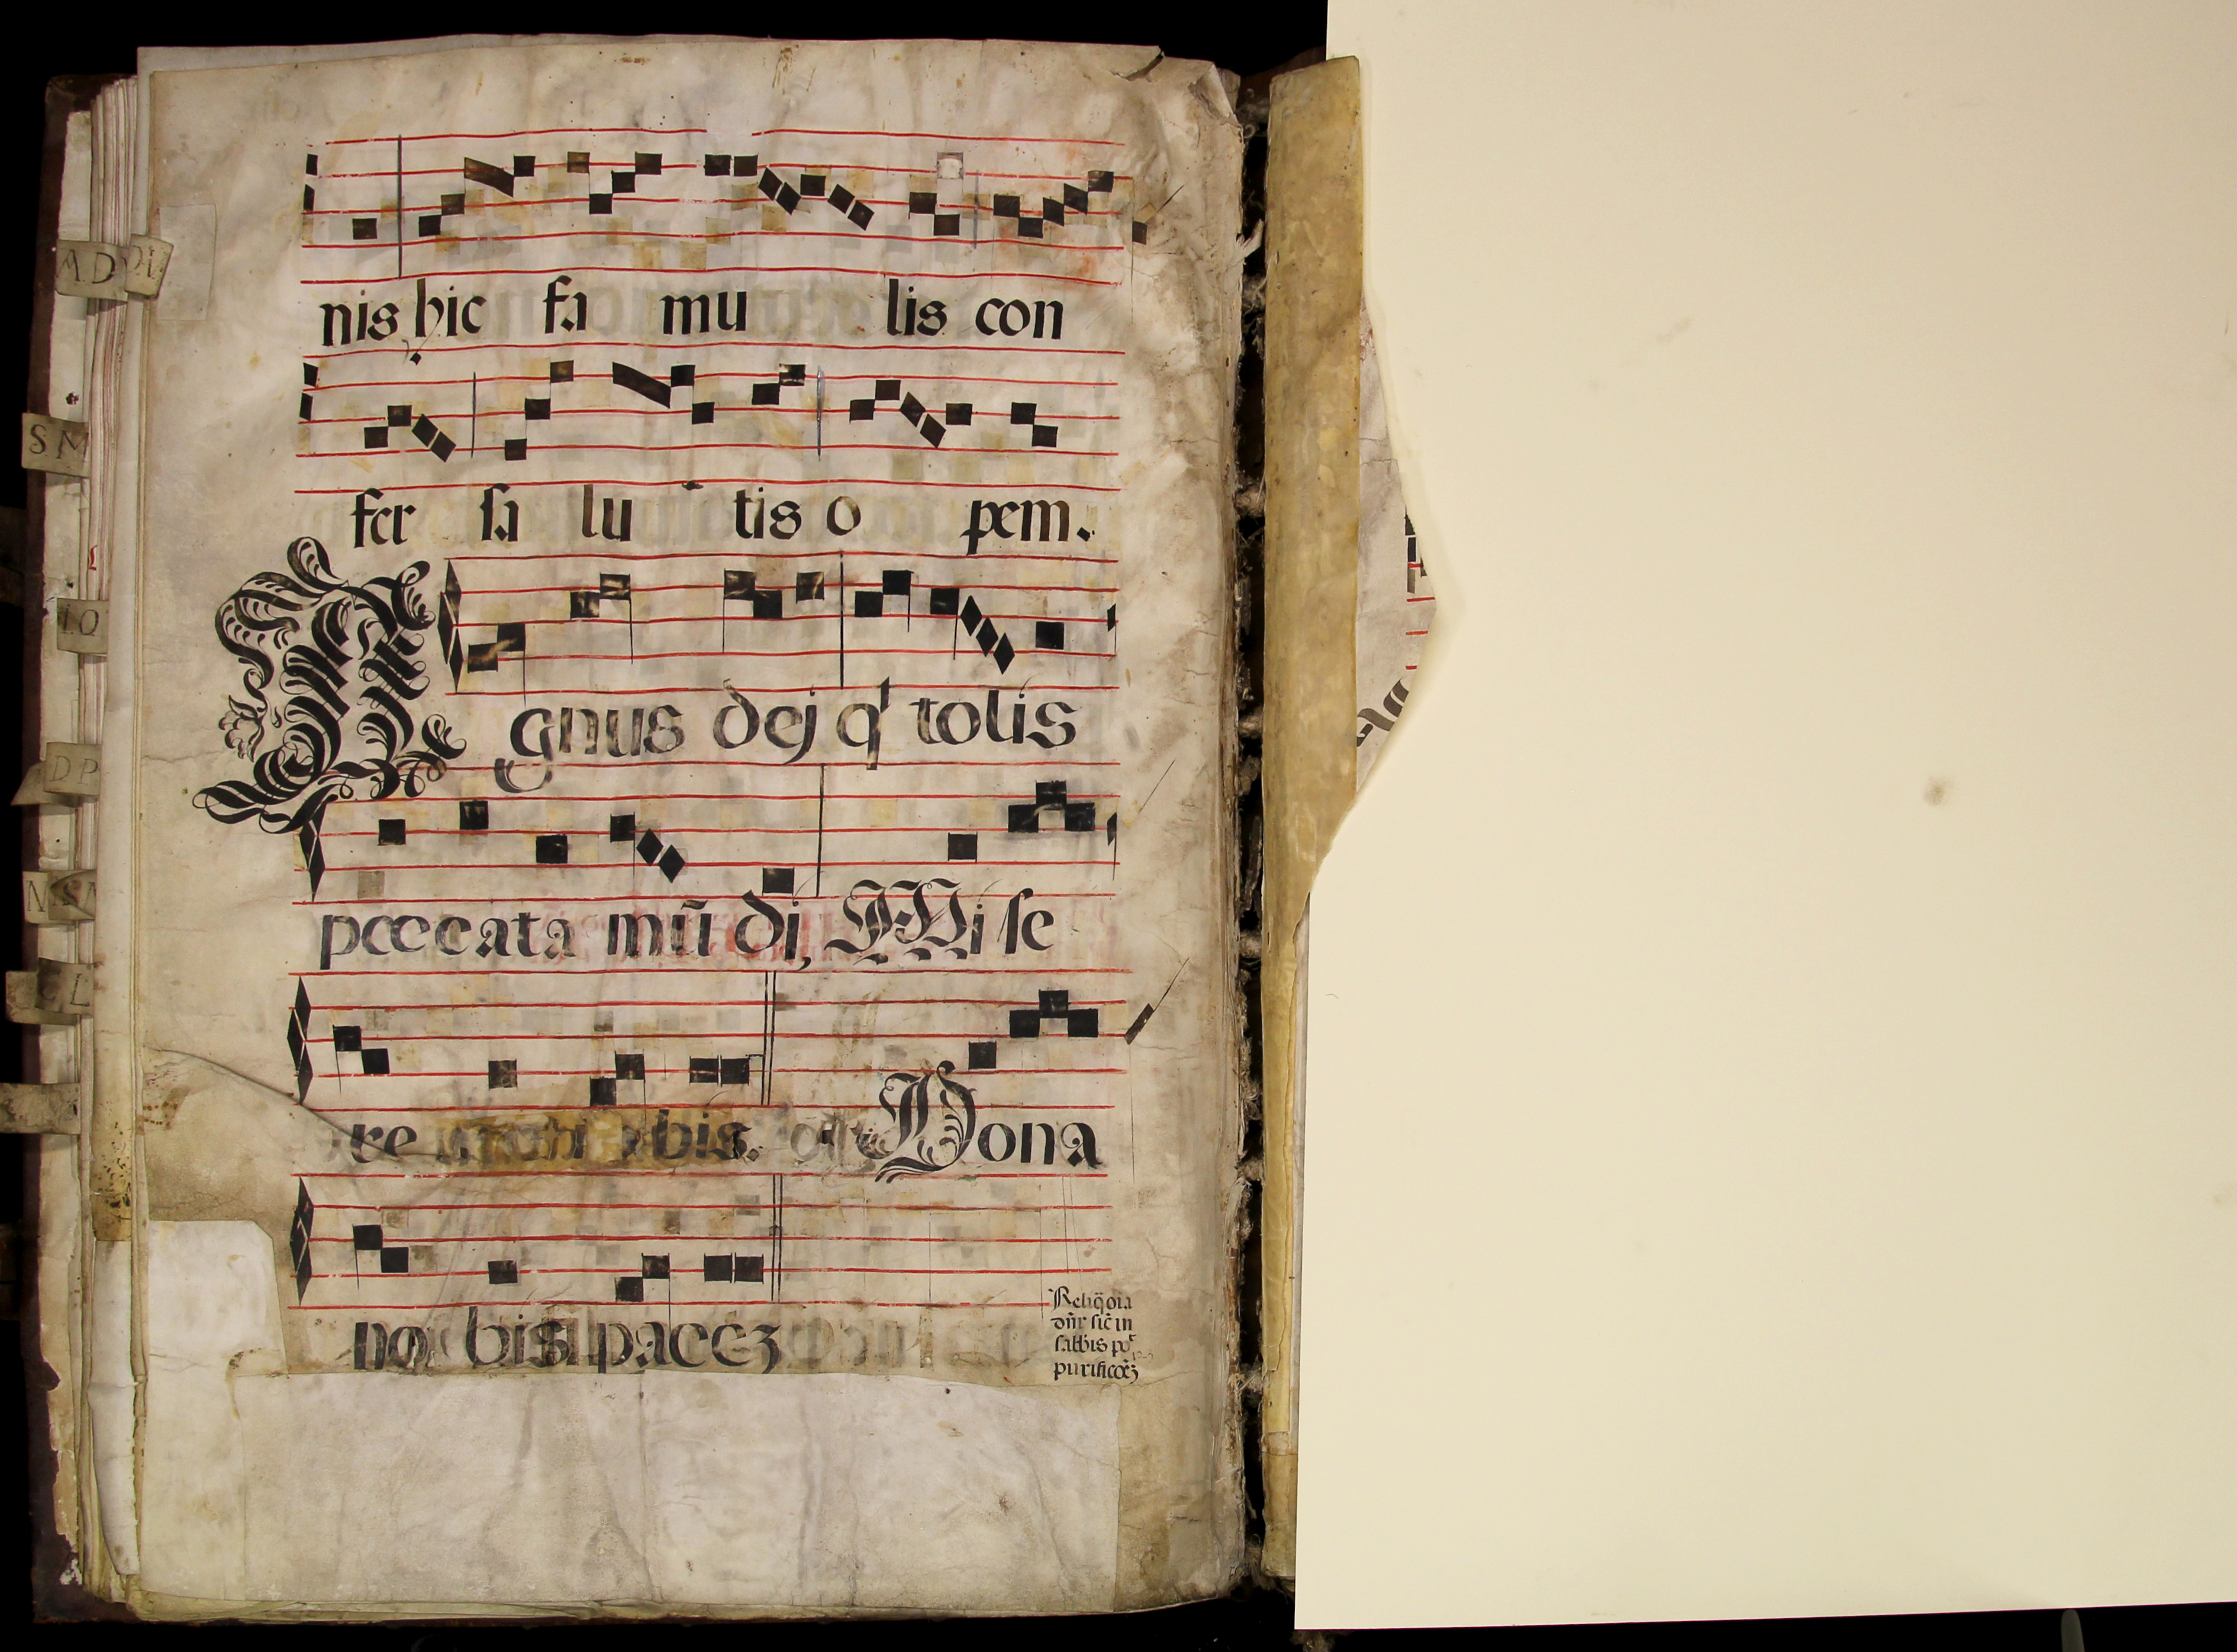 MD
SM
IQ
DP
L
nis hic fa mu lis con
fer sa lu tis o pem.
Agnus dej q' tolis
peccata mũ di, Mi se
re bis. Dona
no bis pacez
Reliq̃ oīa
dn̄r sic̄ in
sabbīs po
purificoēz